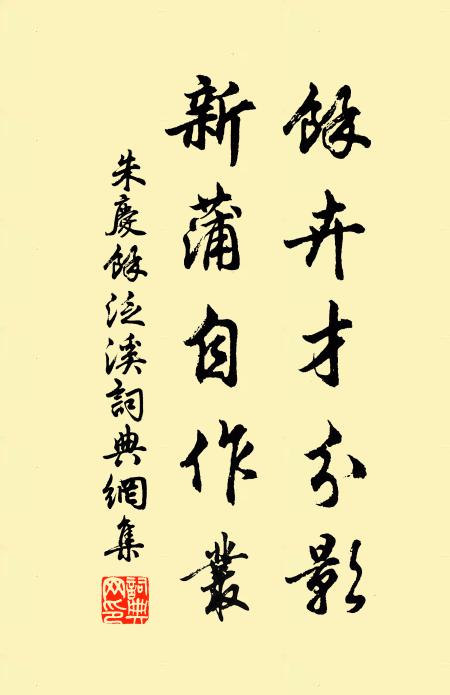 餘卉才分影
新蒲自作叢
朱慶餘泛溪詞典網集
詞典网印